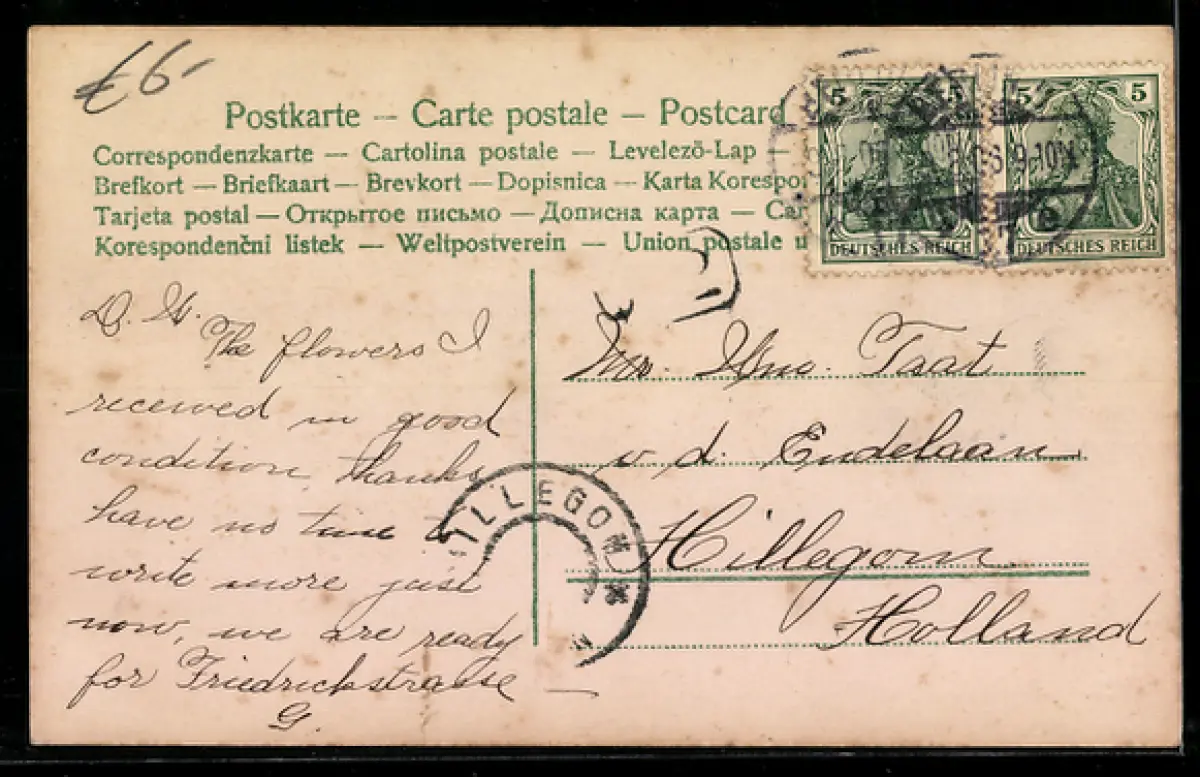 £6-
Postkarte – Carte postale – Postcard
Correspondenzkarte – Cartolina postale – Levelezö-Lap –
Brefkort – Briefkaart – Brevkort – Dopisnica – Karta Korespo
Tarjeta postal – Открытое письмо – Дописна карта – Ca
Korespondenčni listek – Weltpostverein – Union postale u
5 5
5 5
9-10
DEUTSCHES REICH
DEUTSCHES REICH
D. G.
The flowers I
received in good
condition, thanks
have no time to
write more just
now, we are ready
for Friedrichstrasse –
G.
Mr. Taat
v. d. Endelaan
Hillegom
Holland
HILLEGOM *